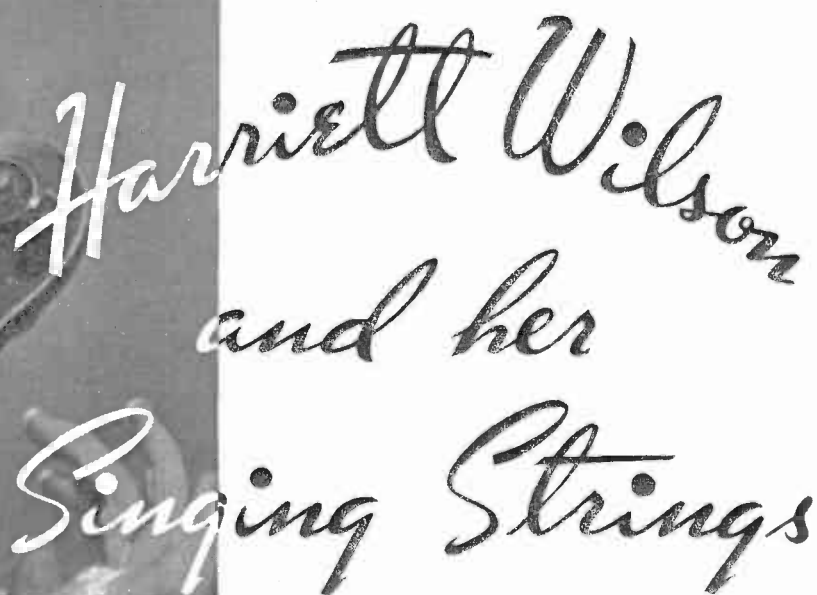 Harriett Wilson
and her
Singing Strings